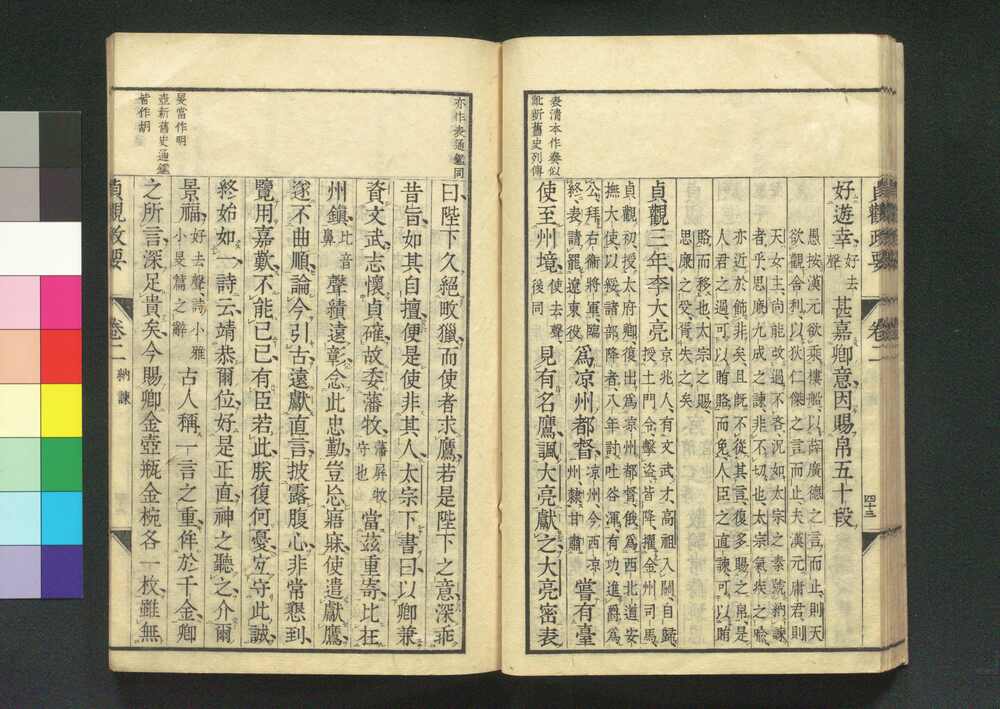 表清本作奏似
訛新舊史列傳
貞觀政要 卷二 四十三
好遊幸、好去聲 甚嘉卿意因賜帛五十段
愚按漢元欲乘樓船、以薛廣德之言而止、則天
欲觀舍利、以狄仁傑之言而止、夫漢元庸君、則
天女主、尚能改過不吝、況如太宗之泰號納諫
者乎、思廉九成之諫非不切也、太宗氣疾之喩
亦近於飾非矣、且既不從其言、復多賜之帛、是
人君之過可以賄賂而免、人臣之直諫可以賄
賂而移也、太宗之賜、
思廉之受、胥失之矣
貞觀三年、李大亮 京兆人、有文武才、高祖入關、自歸、授土門令、擊盜、皆降、擢金州司馬、
貞觀初、授太府卿、復出爲凉州都督、俄爲西北道安
撫大使、以綏諸部降者、八年討吐谷渾、有功、進爵爲
公、拜右衛將軍、臨終、表請罷遼東役 爲凉州都督、凉州、今西凉州、隸甘肅 嘗有臺
使至州境、使去聲後同 見有名鷹、諷大亮獻之、大亮密表
亦作表通鑑同
曰、陛下久絕畋獵、而使者求鷹、若是陛下之意、深乖
昔旨、如其自擅、便是使非其人、太宗下書曰、以卿兼
資文武、志懷貞確、故委藩牧、藩屏牧守也 當茲重寄、比在
州鎮、比音鼻 聲績遠彰、念此忠勤、豈忘寤寐、使遣獻鷹、
遂不曲順、論今引古、遠獻直言、披露腹心、非常懇到、
覽用嘉歎、不能已已、有臣若此、朕復何憂、宜守此誠、
終始如一、詩云、靖恭爾位、好是正直、神之聽之、介爾
景福、好去聲詩小雅小旻篇之辭 古人稱一言之重、侔於千金、卿
之所言、深足貴矣、今賜卿金壺瓶金椀各一枚、雖無
旻當作明
壺新舊史通鑑
皆作胡
貞觀政要 卷二 納諫